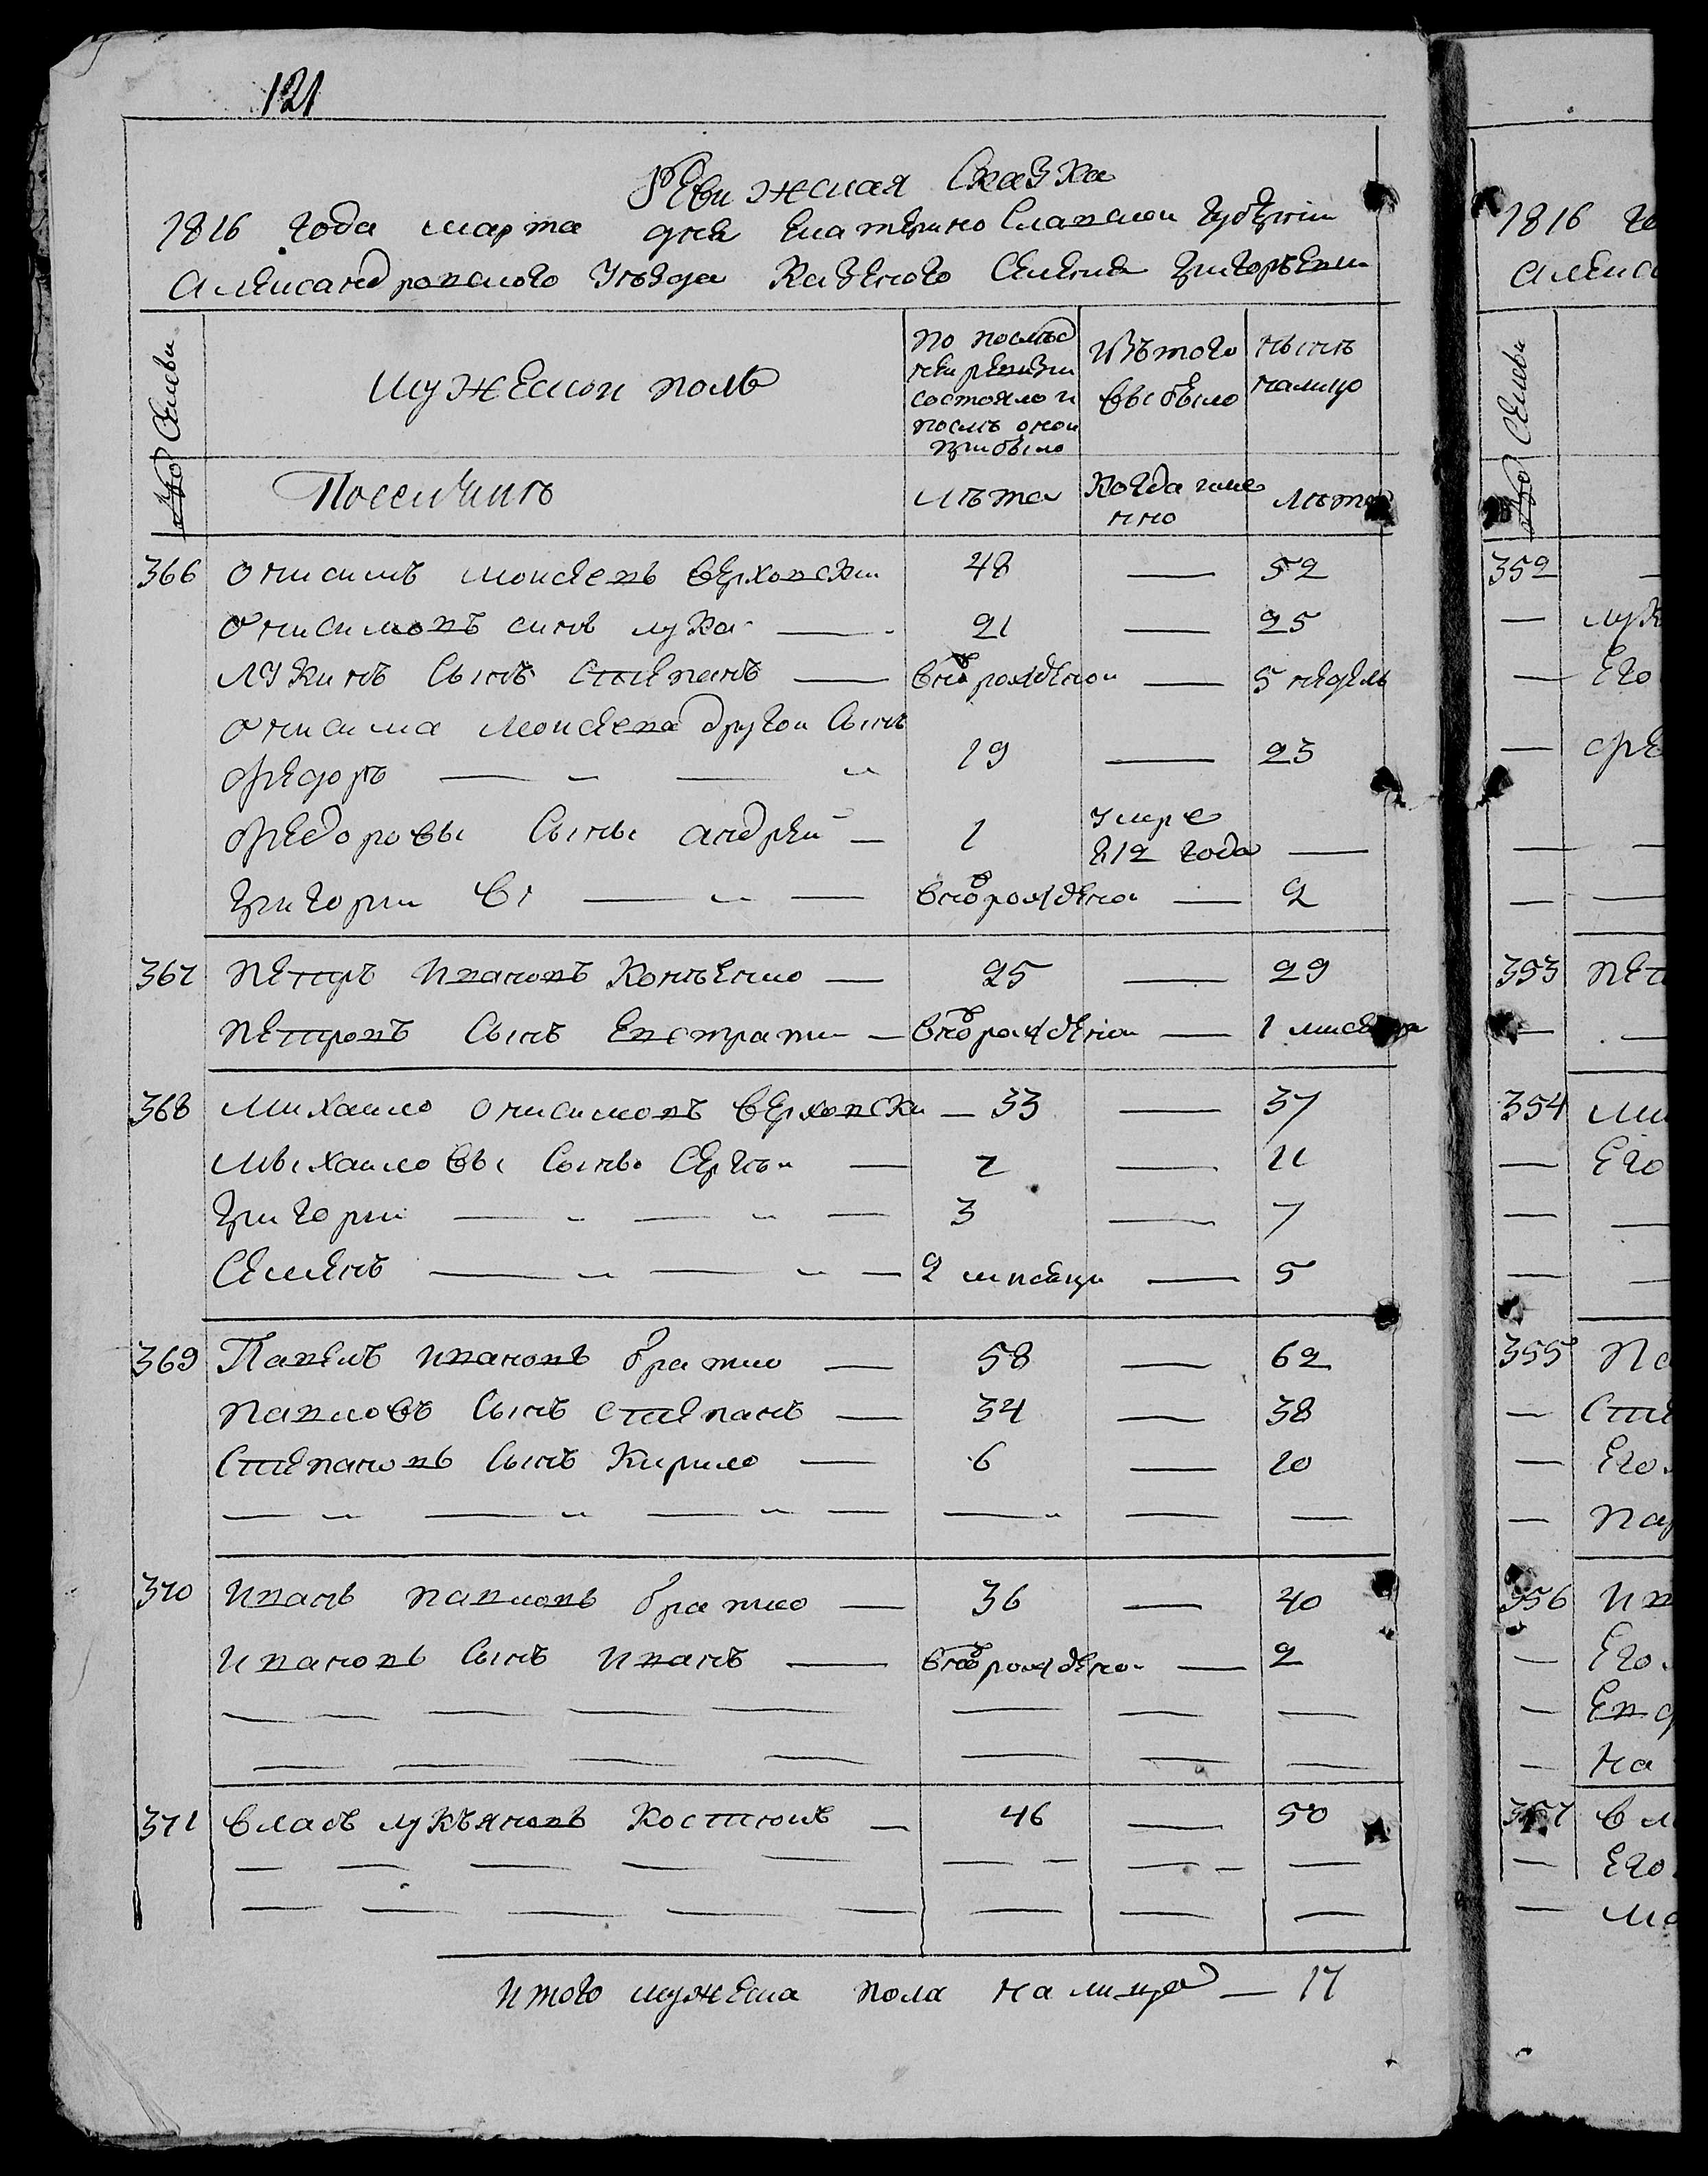 121
Ревижская Сказка
1816 года марта дня Екатеринославской губернии
Александровского уѣзда Казеного Селения Григорьевки
№ Семьи
мужеской полъ
по послѣд
ней ревизии
состояло и
послѣ оной
прибыло
Изъ того
выбыло
нынѣ
налицо
лѣта
когда име
нно
лѣта
366 Онисимъ Моисеевъ Верховски 48 — 52
Онисимовъ синъ лука — 21 — 25
лукинъ Сынъ Степанъ — вноврожденой — 5 недель
Онисима Моисеева другой Сынъ
Федоръ — „ — „ 19 — 23
Федоровы Сыны андрей — 1 умре 812 года —
Григорий — „ — вноврожденой — 2
367 Петръ Ивановъ Конъенко — 25 — 29
Петровъ Сынъ Евстратий — вноврожденой — 1 мисеца
368 Михайло Онисимовъ Верховски — 33 — 37
Мыхайловы Сыны Сергѣй — 7 — 11
Григорий — „ — „ — 3 — 7
Семенъ — „ — „ — 2 мисеци — 5
369 Павелъ Ивановъ братко — 58 — 62
Павловъ Сынъ Степанъ — 34 — 38
Степановъ Сынъ Кирило — 6 — 10
370 Иванъ Павловъ братко — 36 — 40
Ивановъ Сынъ Иванъ — вноврожденой — 2
371 Власъ лукъяновъ Костюкъ — 46 — 50
Итого мужеска пола налицо — 17
1816 го
Алекса
Семьи
352 —
— лук
— Его
— фе
353 Пет
354 Ми
— Его
355 Па
— Сте
— Его
— Пар
356 Ив
— Его
— Евд
— На
357 Вл
— Его
— Ма